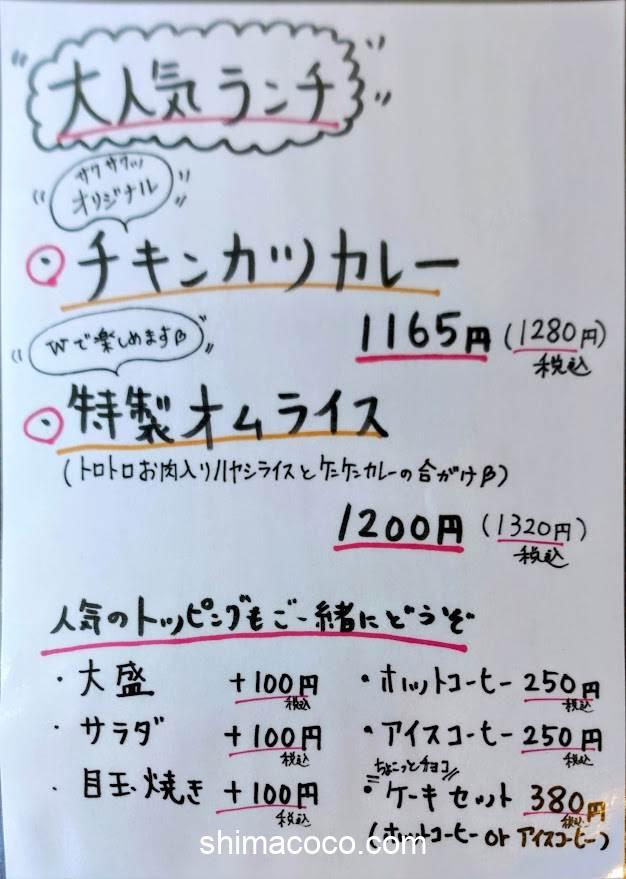 大人気ランチ
サクサクッ
オリジナル
・チキンカツカレー
1165円(1280円)
税込
Wで楽しめますβ
・特製オムライス
(トロトロお肉入りハヤシライスとケンケンカレーの合がけβ)
1200円(1320円)
税込
人気のトッピングもご一緒にどうぞ
・大盛 +100円
税込
・サラダ +100円
税込
・目玉焼き +100円
税込
・ホットコーヒー 250円
税込
・アイスコーヒー 250円
税込
ちょこっとチョコ
・ケーキセット 380円
税込
(ホットコーヒー or アイスコーヒー)
shimacoco.com